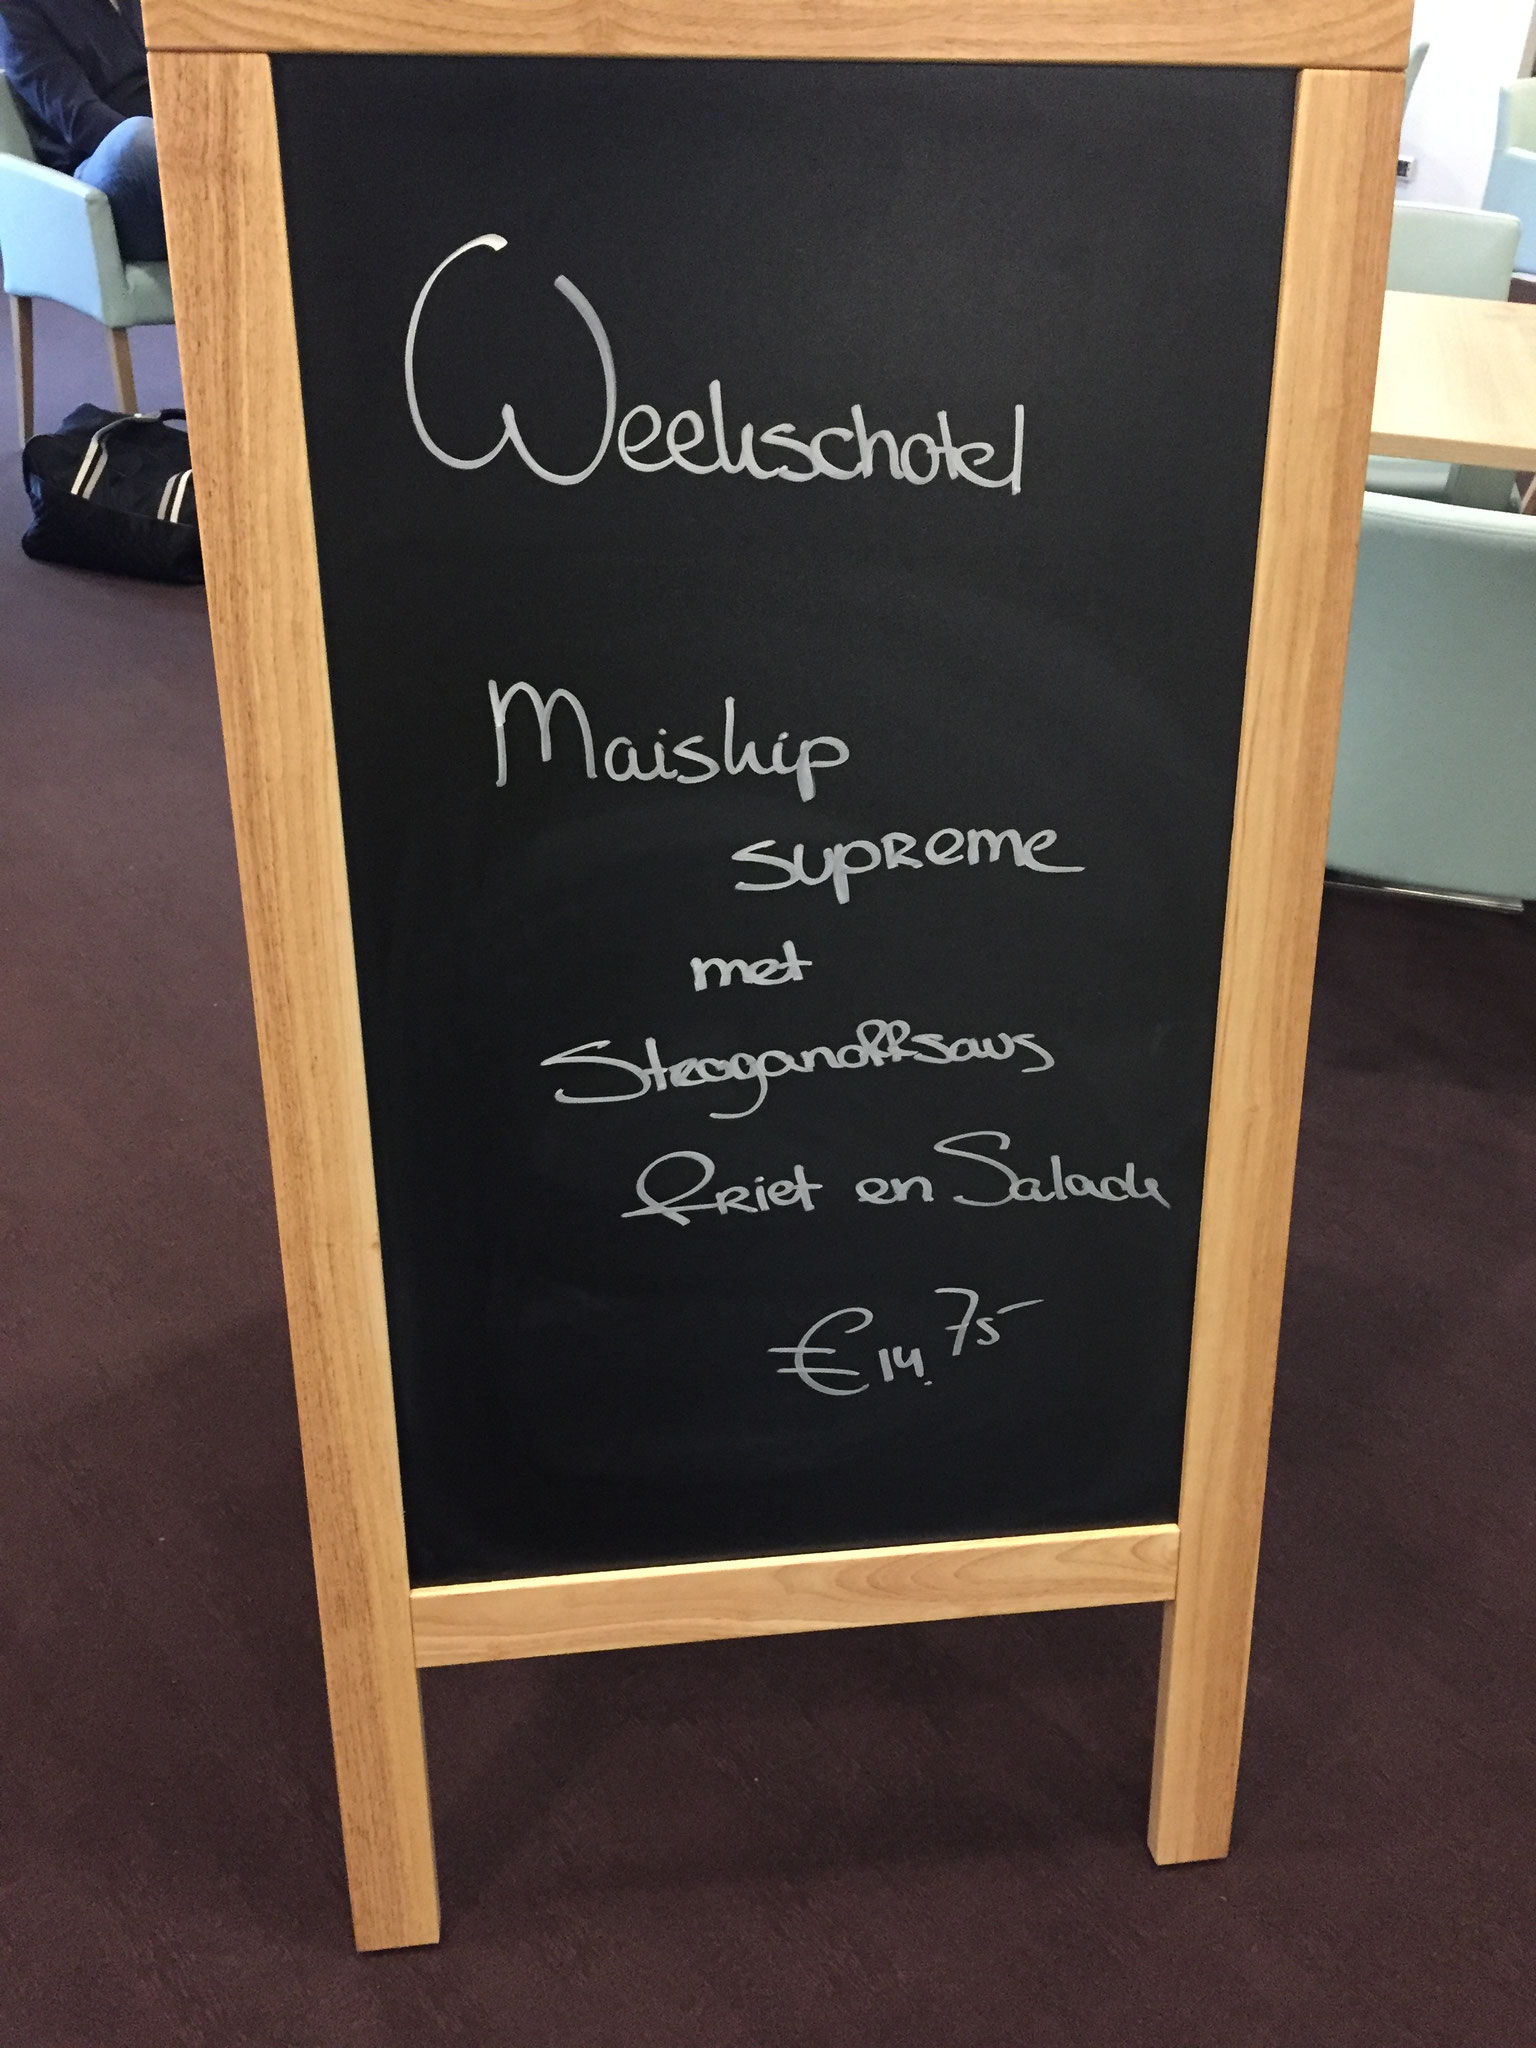 Weekschotel
Maiskip
supreme
met
Stroganoffsaus
friet en Salade
€14.75